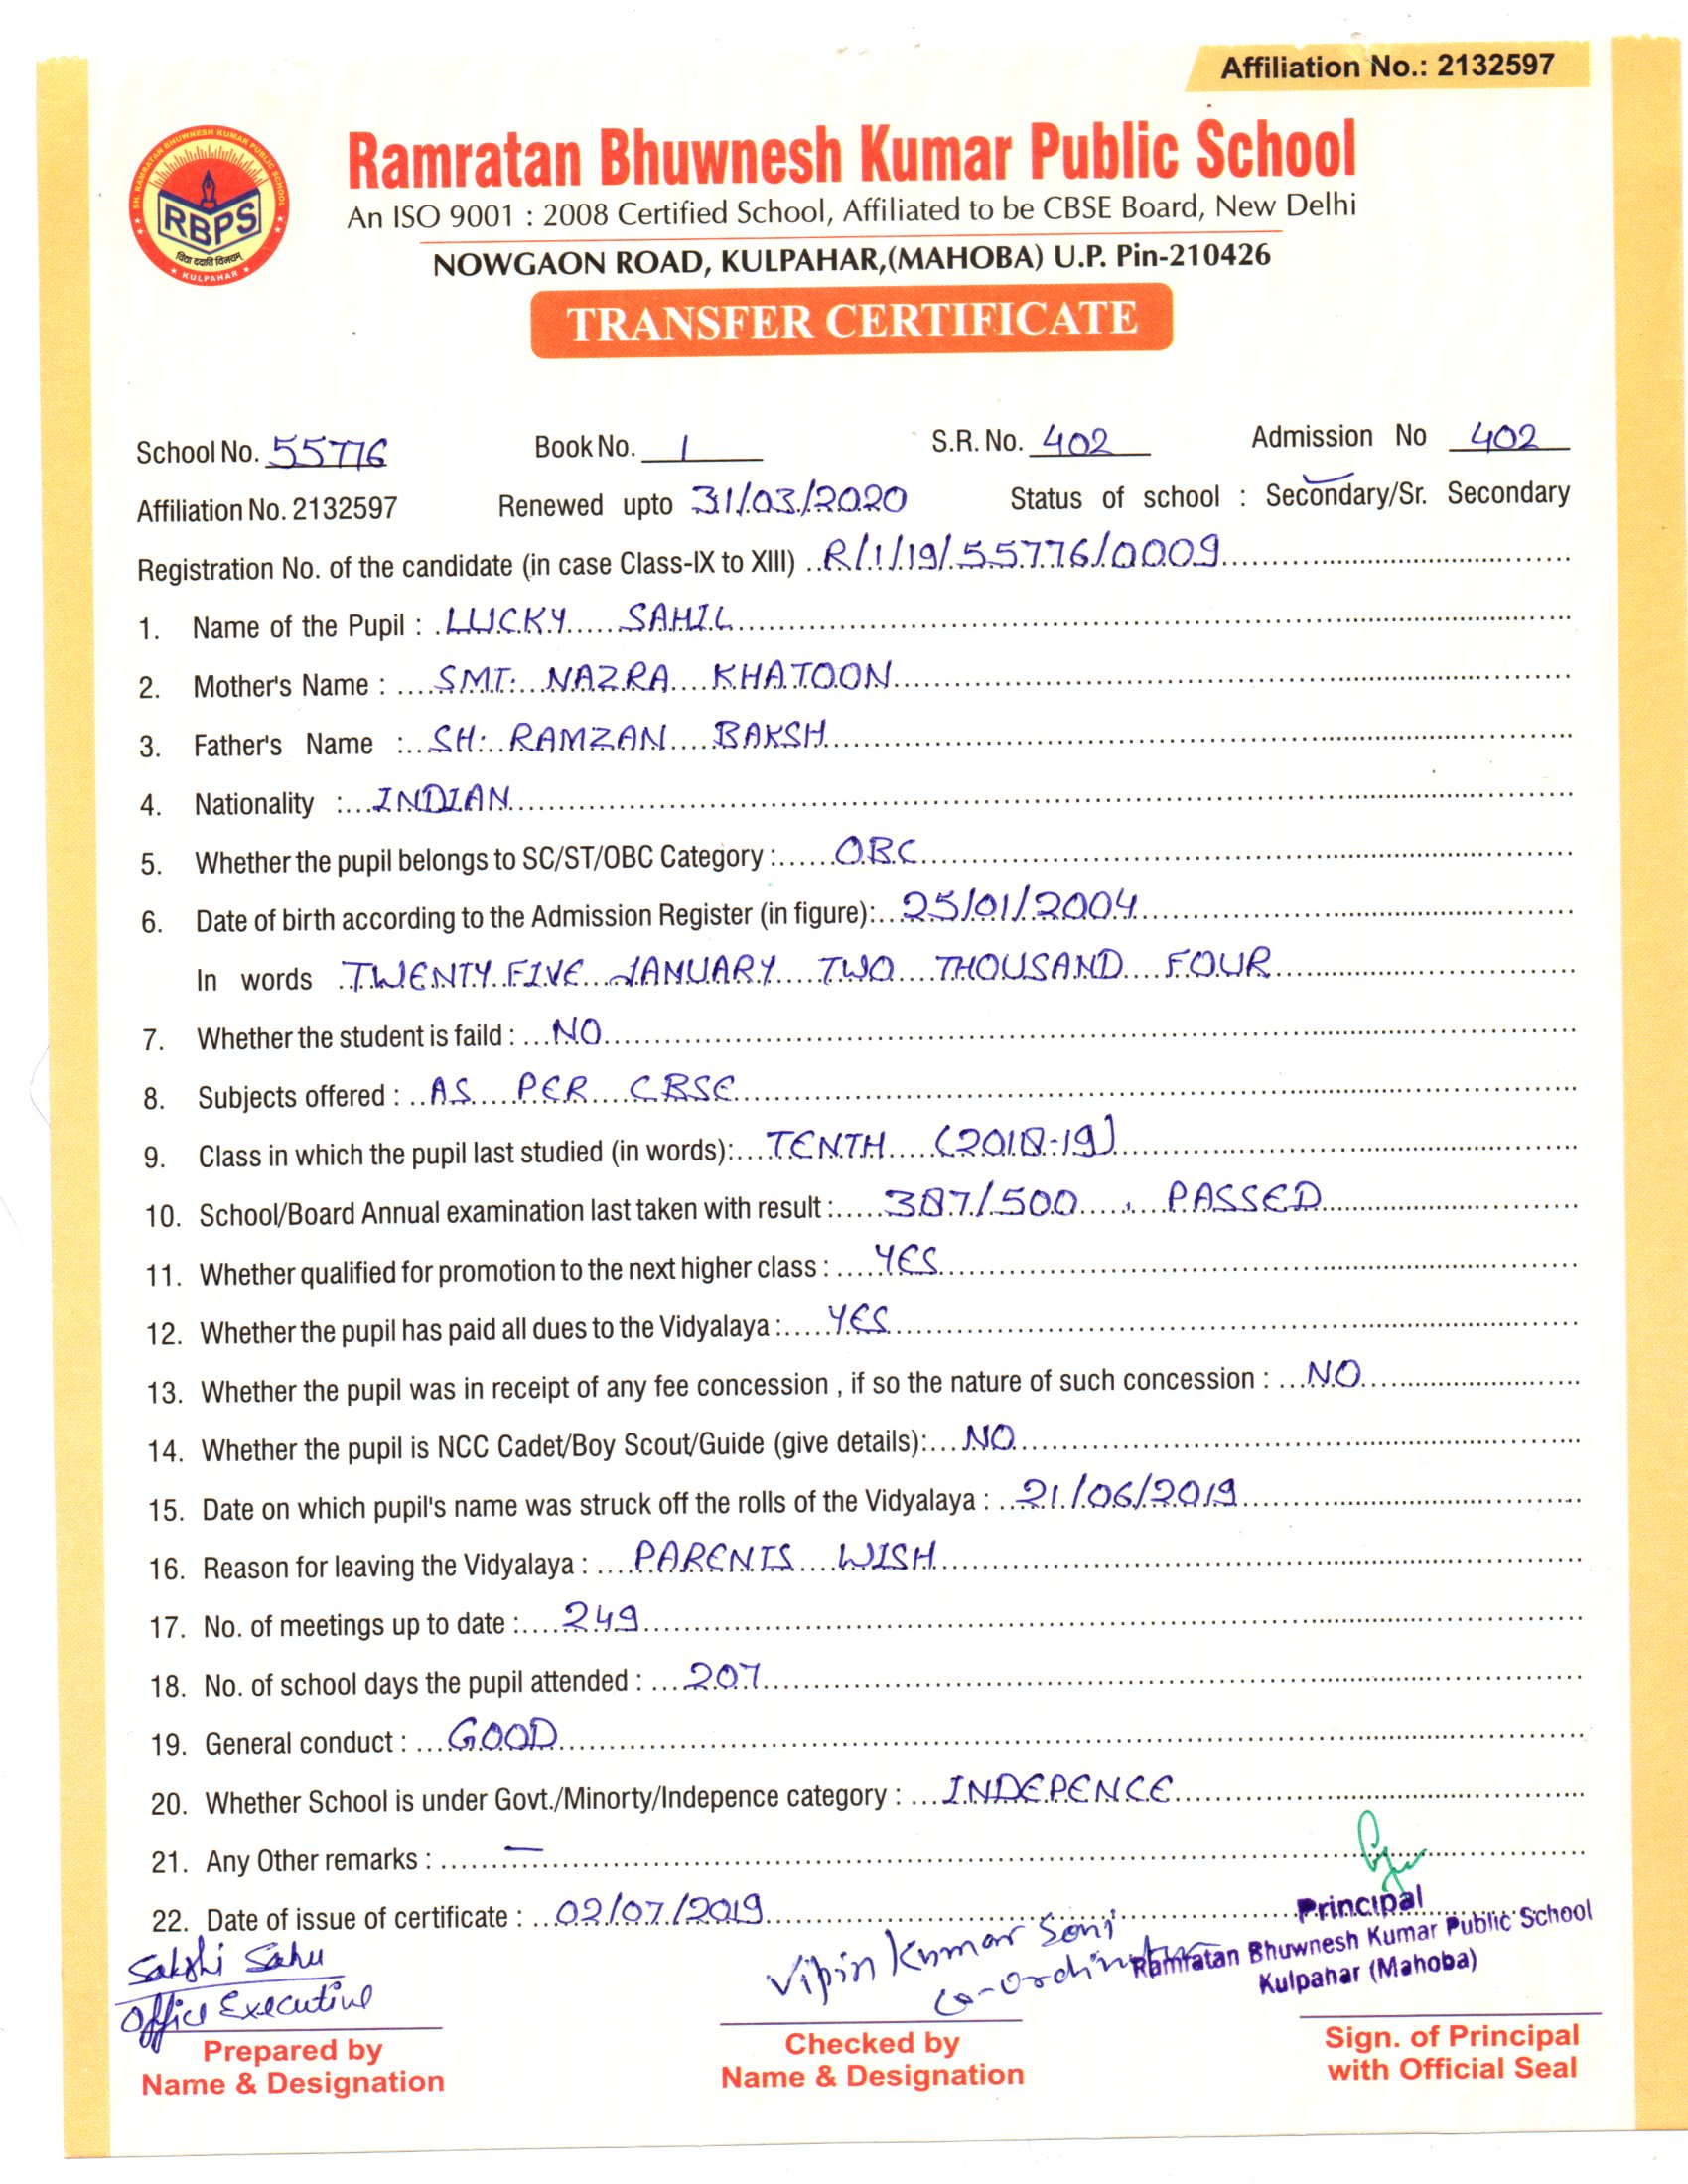 Affiliation No.: 2132597
SH. RAMRATAN BHUWNESH KUMAR PUBLIC SCHOOL
RBPS
विद्या ददाति विनयम्
★ KULPAHAR ★
Ramratan Bhuwnesh Kumar Public School
An ISO 9001 : 2008 Certified School, Affiliated to be CBSE Board, New Delhi
NOWGAON ROAD, KULPAHAR,(MAHOBA) U.P. Pin-210426
TRANSFER CERTIFICATE
School No. 55776 Book No. 1 S.R. No. 402 Admission No 402
Affiliation No. 2132597 Renewed upto 31/03/2020 Status of school : Secondary/Sr. Secondary
Registration No. of the candidate (in case Class-IX to XIII) R/1/19/55776/0009
1. Name of the Pupil : LUCKY SAHIL
2. Mother's Name : SMT. NAZRA KHATOON
3. Father's Name : SH. RAMZAN BAKSH
4. Nationality : INDIAN
5. Whether the pupil belongs to SC/ST/OBC Category : OBC
6. Date of birth according to the Admission Register (in figure): 25/01/2004
In words TWENTY FIVE JANUARY TWO THOUSAND FOUR
7. Whether the student is faild : NO
8. Subjects offered : AS PER CBSE
9. Class in which the pupil last studied (in words): TENTH (2018-19)
10. School/Board Annual examination last taken with result : 387/500 , PASSED
11. Whether qualified for promotion to the next higher class : YES
12. Whether the pupil has paid all dues to the Vidyalaya : YES
13. Whether the pupil was in receipt of any fee concession , if so the nature of such concession : NO
14. Whether the pupil is NCC Cadet/Boy Scout/Guide (give details): NO
15. Date on which pupil's name was struck off the rolls of the Vidyalaya : 21/06/2019
16. Reason for leaving the Vidyalaya : PARENTS WISH
17. No. of meetings up to date : 249
18. No. of school days the pupil attended : 207
19. General conduct : GOOD
20. Whether School is under Govt./Minorty/Indepence category : INDEPENCE
21. Any Other remarks : —
22. Date of issue of certificate : 02/07/2019
Sakshi Sahu
Office Executive
Prepared by
Name & Designation
Vipin Kumar Soni
Co-ordinator
Checked by
Name & Designation
Principal
Ramratan Bhuwnesh Kumar Public School
Kulpahar (Mahoba)
Sign. of Principal
with Official Seal